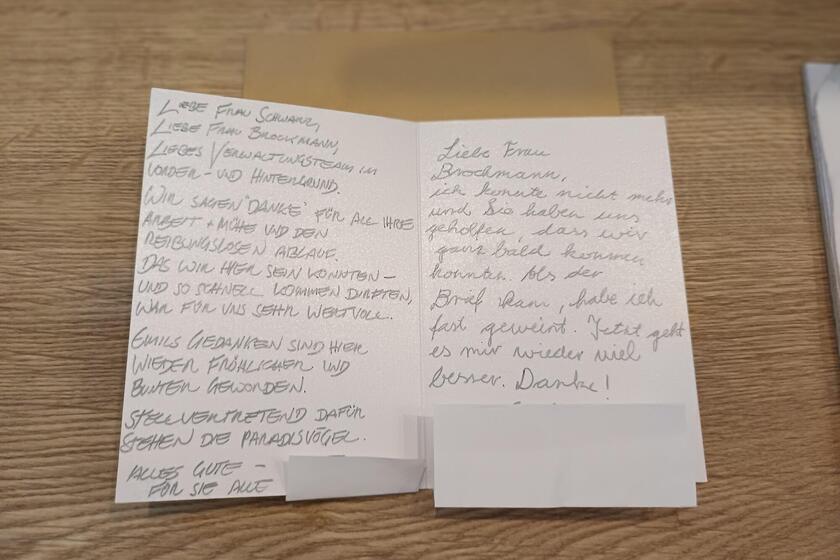 LIEBE FRAU SCHWARZ,
LIEBE FRAU BROCKMANN,
LIEBES VERWALTUNGSTEAM IM
VORDER- UND HINTERGRUND.
WIR SAGEN "DANKE" FÜR ALL IHRE
ARBEIT + MÜHE UND DEN
REIBUNGSLOSEN ABLAUF.
DAS WIR HIER SEIN KONNTEN –
UND SO SCHNELL KOMMEN DURFTEN,
WAR FÜR UNS SEHR WERTVOLL.
EMILS GEDANKEN SIND HIER
WIEDER FRÖHLICHER UND
BUNTER GEWORDEN.
STELLVERTRETEND DAFÜR
STEHEN DIE PARADISVÖGEL.
ALLES GUTE –
FÜR SIE ALLE
Liebe Frau
Brochmann,
ich konnte nicht mehr
und Sie haben uns
geholfen, dass wir
ganz bald kommen
konnten. Als der
Brief kam, habe ich
fast geweint. Jetzt geht
es mir wieder viel
besser. Danke!